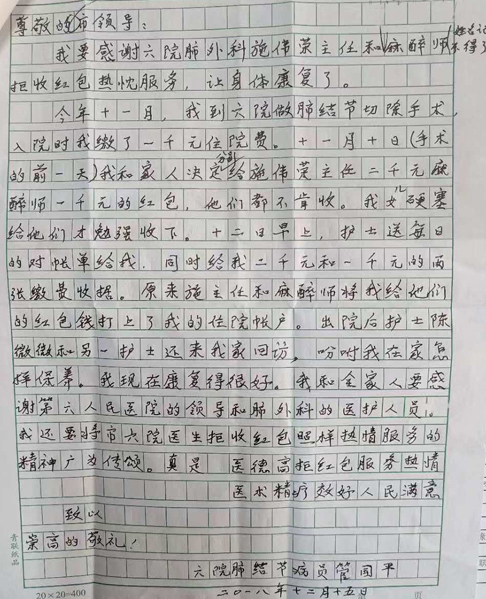 尊敬的市领导：
我要感谢六院肺外科施伟荣主任和麻醉师(姓名记不得了)
拒收红包热忱服务，让身体康复了。
今年十一月，我到六院做肺结节切除手术，
入院时我缴了一千元住院费。十一月十日(手术
的前一天)我和家人决定分别给施伟荣主任二千元麻
醉师一千元的红包，他们都不肯收。我女儿硬塞
给他们才勉强收下。十二日早上，护士送每日
的对帐单给我，同时给我二千元和一千元的两
张缴费收据。原来施主任和麻醉师将我给他们
的红包钱打上了我的住院帐户。出院后护士陈
微微和另一护士还来我家回访，吩咐我在家怎
样保养。我现在康复得很好。我和全家人要感
谢第六人民医院的领导和肺外科的医护人员！
我还要将市六院医生拒收红包照样热情服务的
精神广为传颂。真是 医德高拒红包服务热情
医术精疗效好人民满意
致以
崇高的敬礼！
六院肺结节病员管同平
二〇一八年十二月十五日
青联纸品
20×20=400
页